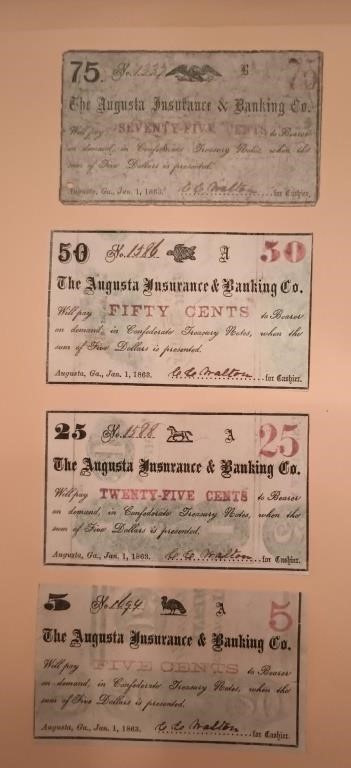 75. No. 1337 B 75
The Augusta Insurance & Banking Co.
Will pay SEVENTY-FIVE CENTS to Bearer
on demand, in Confederate Treasury Notes, when the
sum of Five Dollars is presented.
Augusta, Ga., Jan. 1, 1863. C C Walton for Cashier.
50 No. 1586 A 50
The Augusta Insurance & Banking Co.
Will pay FIFTY CENTS to Bearer
on demand, in Confederate Treasury Notes, when the
sum of Five Dollars is presented.
Augusta, Ga., Jan. 1, 1863. C C Walton for Cashier.
25 No. 1588 A 25
The Augusta Insurance & Banking Co.
Will pay TWENTY-FIVE CENTS to Bearer
on demand, in Confederate Treasury Notes, when the
sum of Five Dollars is presented.
Augusta, Ga., Jan. 1, 1863. C C Walton for Cashier.
5 No. 1694 A 5
The Augusta Insurance & Banking Co.
Will pay FIVE CENTS to Bearer
on demand, in Confederate Treasury Notes, when the
sum of Five Dollars is presented.
Augusta, Ga., Jan. 1, 1863. C C Walton for Cashier.